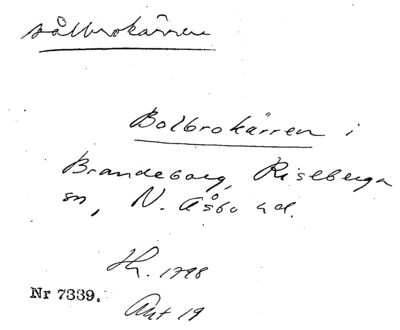 sålbrokärren
Bolbrokärren i
Brandeborg, Riseberga
sn, N. Åsbo hd.
Hn. 1798
Nr 7339.
Akt 19